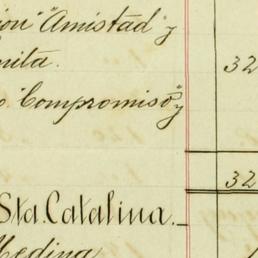 ion "Amistad" y
nita. 32
o "Compromiso" y
32
Sta. Catalina.
Medina